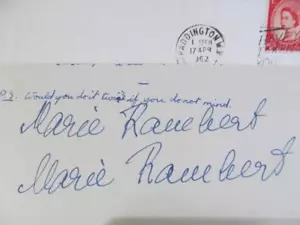 PADDINGTON W.2
17 APR
196
P.S. Would you do it twice if you do not mind.
Marie Rambert
Marie Rambert